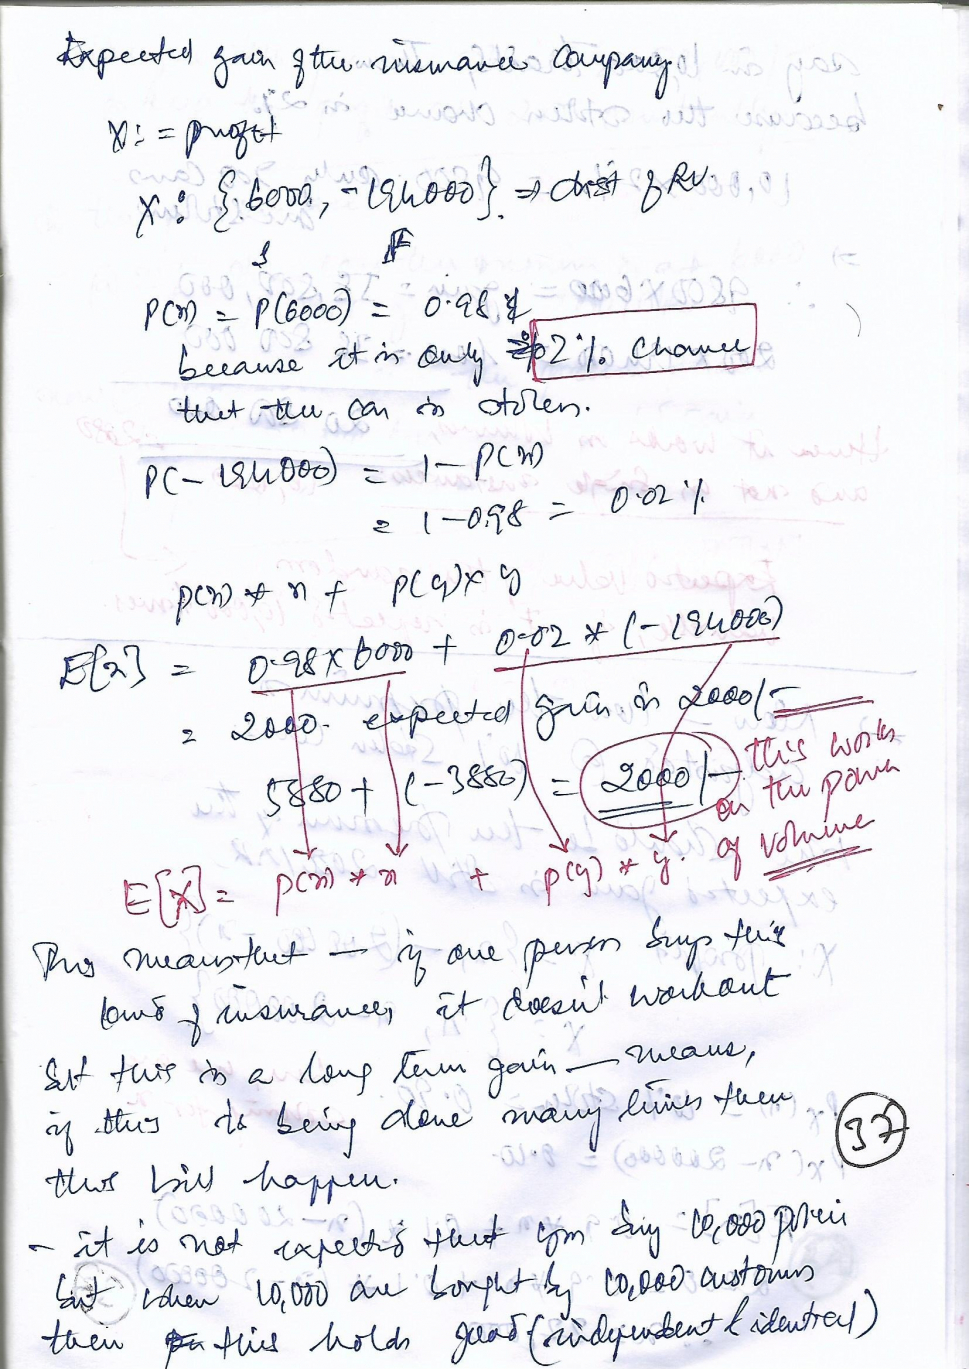 Expected gain of the insurance company.
X := profit
X : {6000, -194000}. => dist of RV.
S F
P(x) = P(6000) = 0.98 %
because it is only 02% chance
that the car is stolen.
P(-194000) = 1 - P(x)
= 1 - 0.98 = 0.02 %
P(x) * x + P(y) x y
E[x] = 0.98 x 6000 + 0.02 * (-194000)
= 2000. expected gain is 2000/-
5880 + (-3880) = 2000/-
this works
on the power
of volume
E[X] = P(x) * x + P(y) * y.
This means that - if one person buys this
kind of insurance, it doesn't workout
but this is a long term gain - means,
if this is being done many times then
this will happen.
37
- it is not expected that you buy 10,000 policies
but when 10,000 are bought by 10,000 customers
then this holds good (independent & identical)